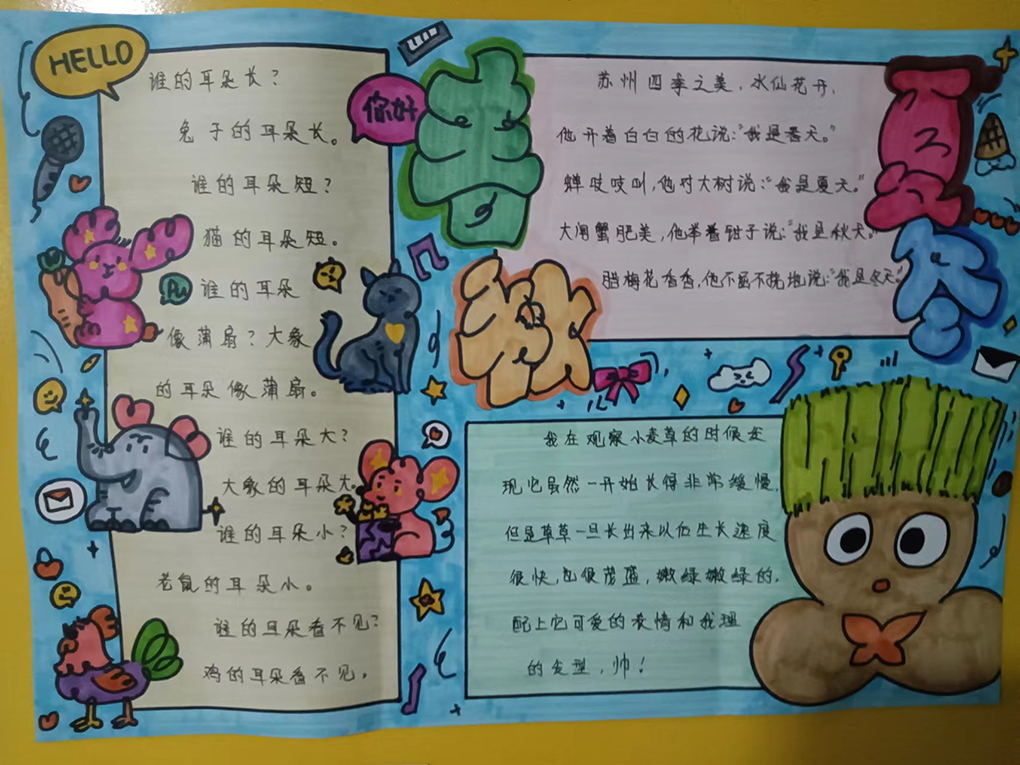 HELLO
谁的耳朵长？
兔子的耳朵长。
谁的耳朵短？
猫的耳朵短。
谁的耳朵
像蒲扇？大象
的耳朵像蒲扇。
谁的耳朵大？
大象的耳朵大。
谁的耳朵小？
老鼠的耳朵小。
谁的耳朵看不见？
鸡的耳朵看不见。
你好
春
夏
秋
冬
苏州四季之美，水仙花开，
他开着白白的花说：“我是春天。”
蝉吱吱叫，他对大树说：“我是夏天。”
大闸蟹肥美，他举着钳子说：“我是秋天。”
腊梅花香香，他不屈不挠地说：“我是冬天。”
我在观察小麦草的时候发
现它虽然一开始长得非常缓慢，
但是草草一旦长出来以后生长速度
很快，也很茂盛，嫩绿嫩绿的，
配上它可爱的表情和我理
的发型，帅！